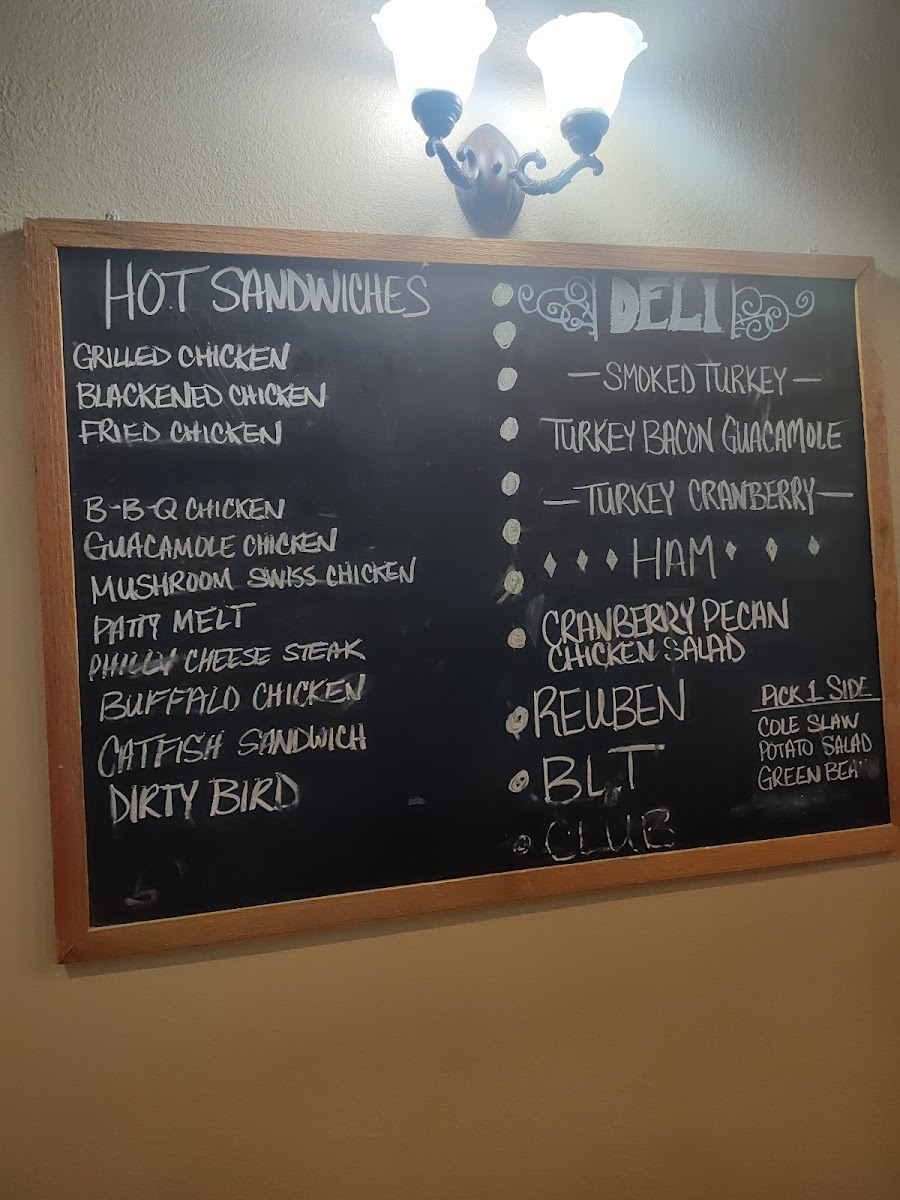 HOT SANDWICHES
GRILLED CHICKEN
BLACKENED CHICKEN
FRIED CHICKEN
B-B-Q CHICKEN
GUACAMOLE CHICKEN
MUSHROOM SWISS CHICKEN
PATTY MELT
PHILLY CHEESE STEAK
BUFFALO CHICKEN
CATFISH SANDWICH
DIRTY BIRD
DELI
—SMOKED TURKEY—
TURKEY BACON GUACAMOLE
—TURKEY CRANBERRY—
HAM
CRANBERRY PECAN
CHICKEN SALAD
REUBEN
BLT
CLUB
PICK 1 SIDE
COLE SLAW
POTATO SALAD
GREEN BEA